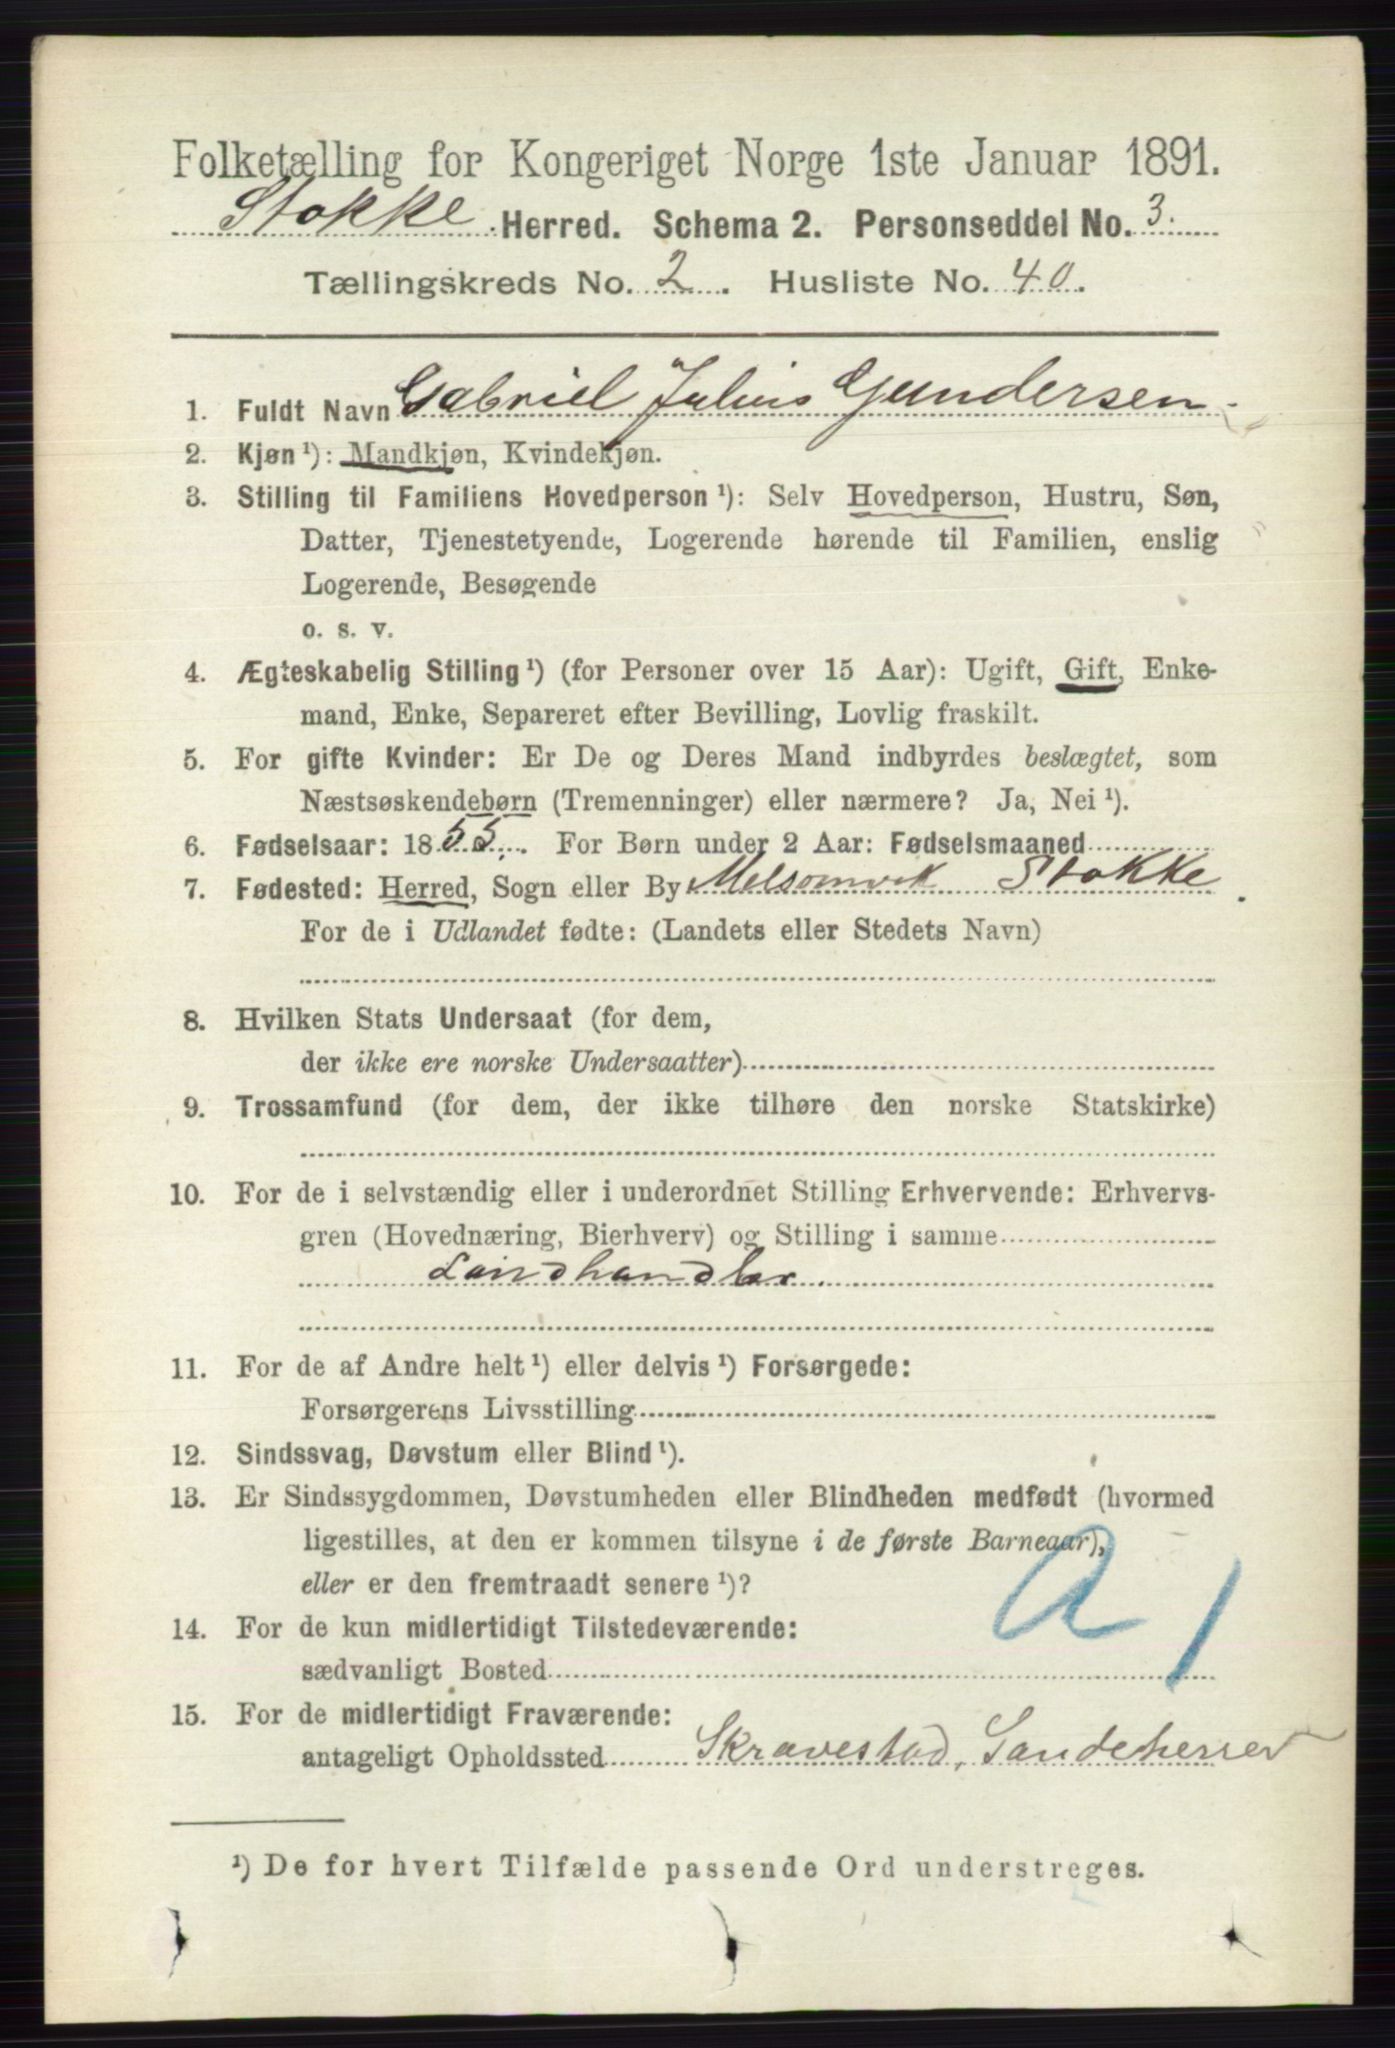 Folketælling for Kongeriget Norge 1ste Januar 1891.
Stokke Herred. Schema 2. Personseddel No. 3.
Tællingskreds No. 2. Husliste No. 40.
1. Fuldt Navn Gabriel Julius Gundersen.
2. Kjøn ¹): Mandkjøn, Kvindekjøn.
3. Stilling til Familiens Hovedperson ¹): Selv Hovedperson, Hustru, Søn,
Datter, Tjenestetyende, Logerende hørende til Familien, enslig
Logerende, Besøgende
o. s. v.
4. Ægteskabelig Stilling ¹) (for Personer over 15 Aar): Ugift, Gift, Enke-
mand, Enke, Separeret efter Bevilling, Lovlig fraskilt.
5. For gifte Kvinder: Er De og Deres Mand indbyrdes beslægtet, som
Næstsøskendebørn (Tremenninger) eller nærmere? Ja, Nei ¹).
6. Fødselsaar: 1855. For Børn under 2 Aar: Fødselsmaaned
7. Fødested: Herred, Sogn eller By Melsomvik Stokke.
For de i Udlandet fødte: (Landets eller Stedets Navn)
8. Hvilken Stats Undersaat (for dem,
der ikke ere norske Undersaatter)
9. Trossamfund (for dem, der ikke tilhøre den norske Statskirke)
10. For de i selvstændig eller i underordnet Stilling Erhvervende: Erhvervs-
gren (Hovednæring, Bierhverv) og Stilling i samme
Landhandler.
11. For de af Andre helt ¹) eller delvis ¹) Forsørgede:
Forsørgerens Livsstilling
12. Sindssvag, Døvstum eller Blind ¹).
13. Er Sindssygdommen, Døvstumheden eller Blindheden medfødt (hvormed
ligestilles, at den er kommen tilsyne i de første Barneaar),
eller er den fremtraadt senere ¹)?
a 1
14. For de kun midlertidigt Tilstedeværende:
sædvanligt Bosted
15. For de midlertidigt Fraværende:
antageligt Opholdssted Skravestad, Sandeherred
¹) De for hvert Tilfælde passende Ord understreges.